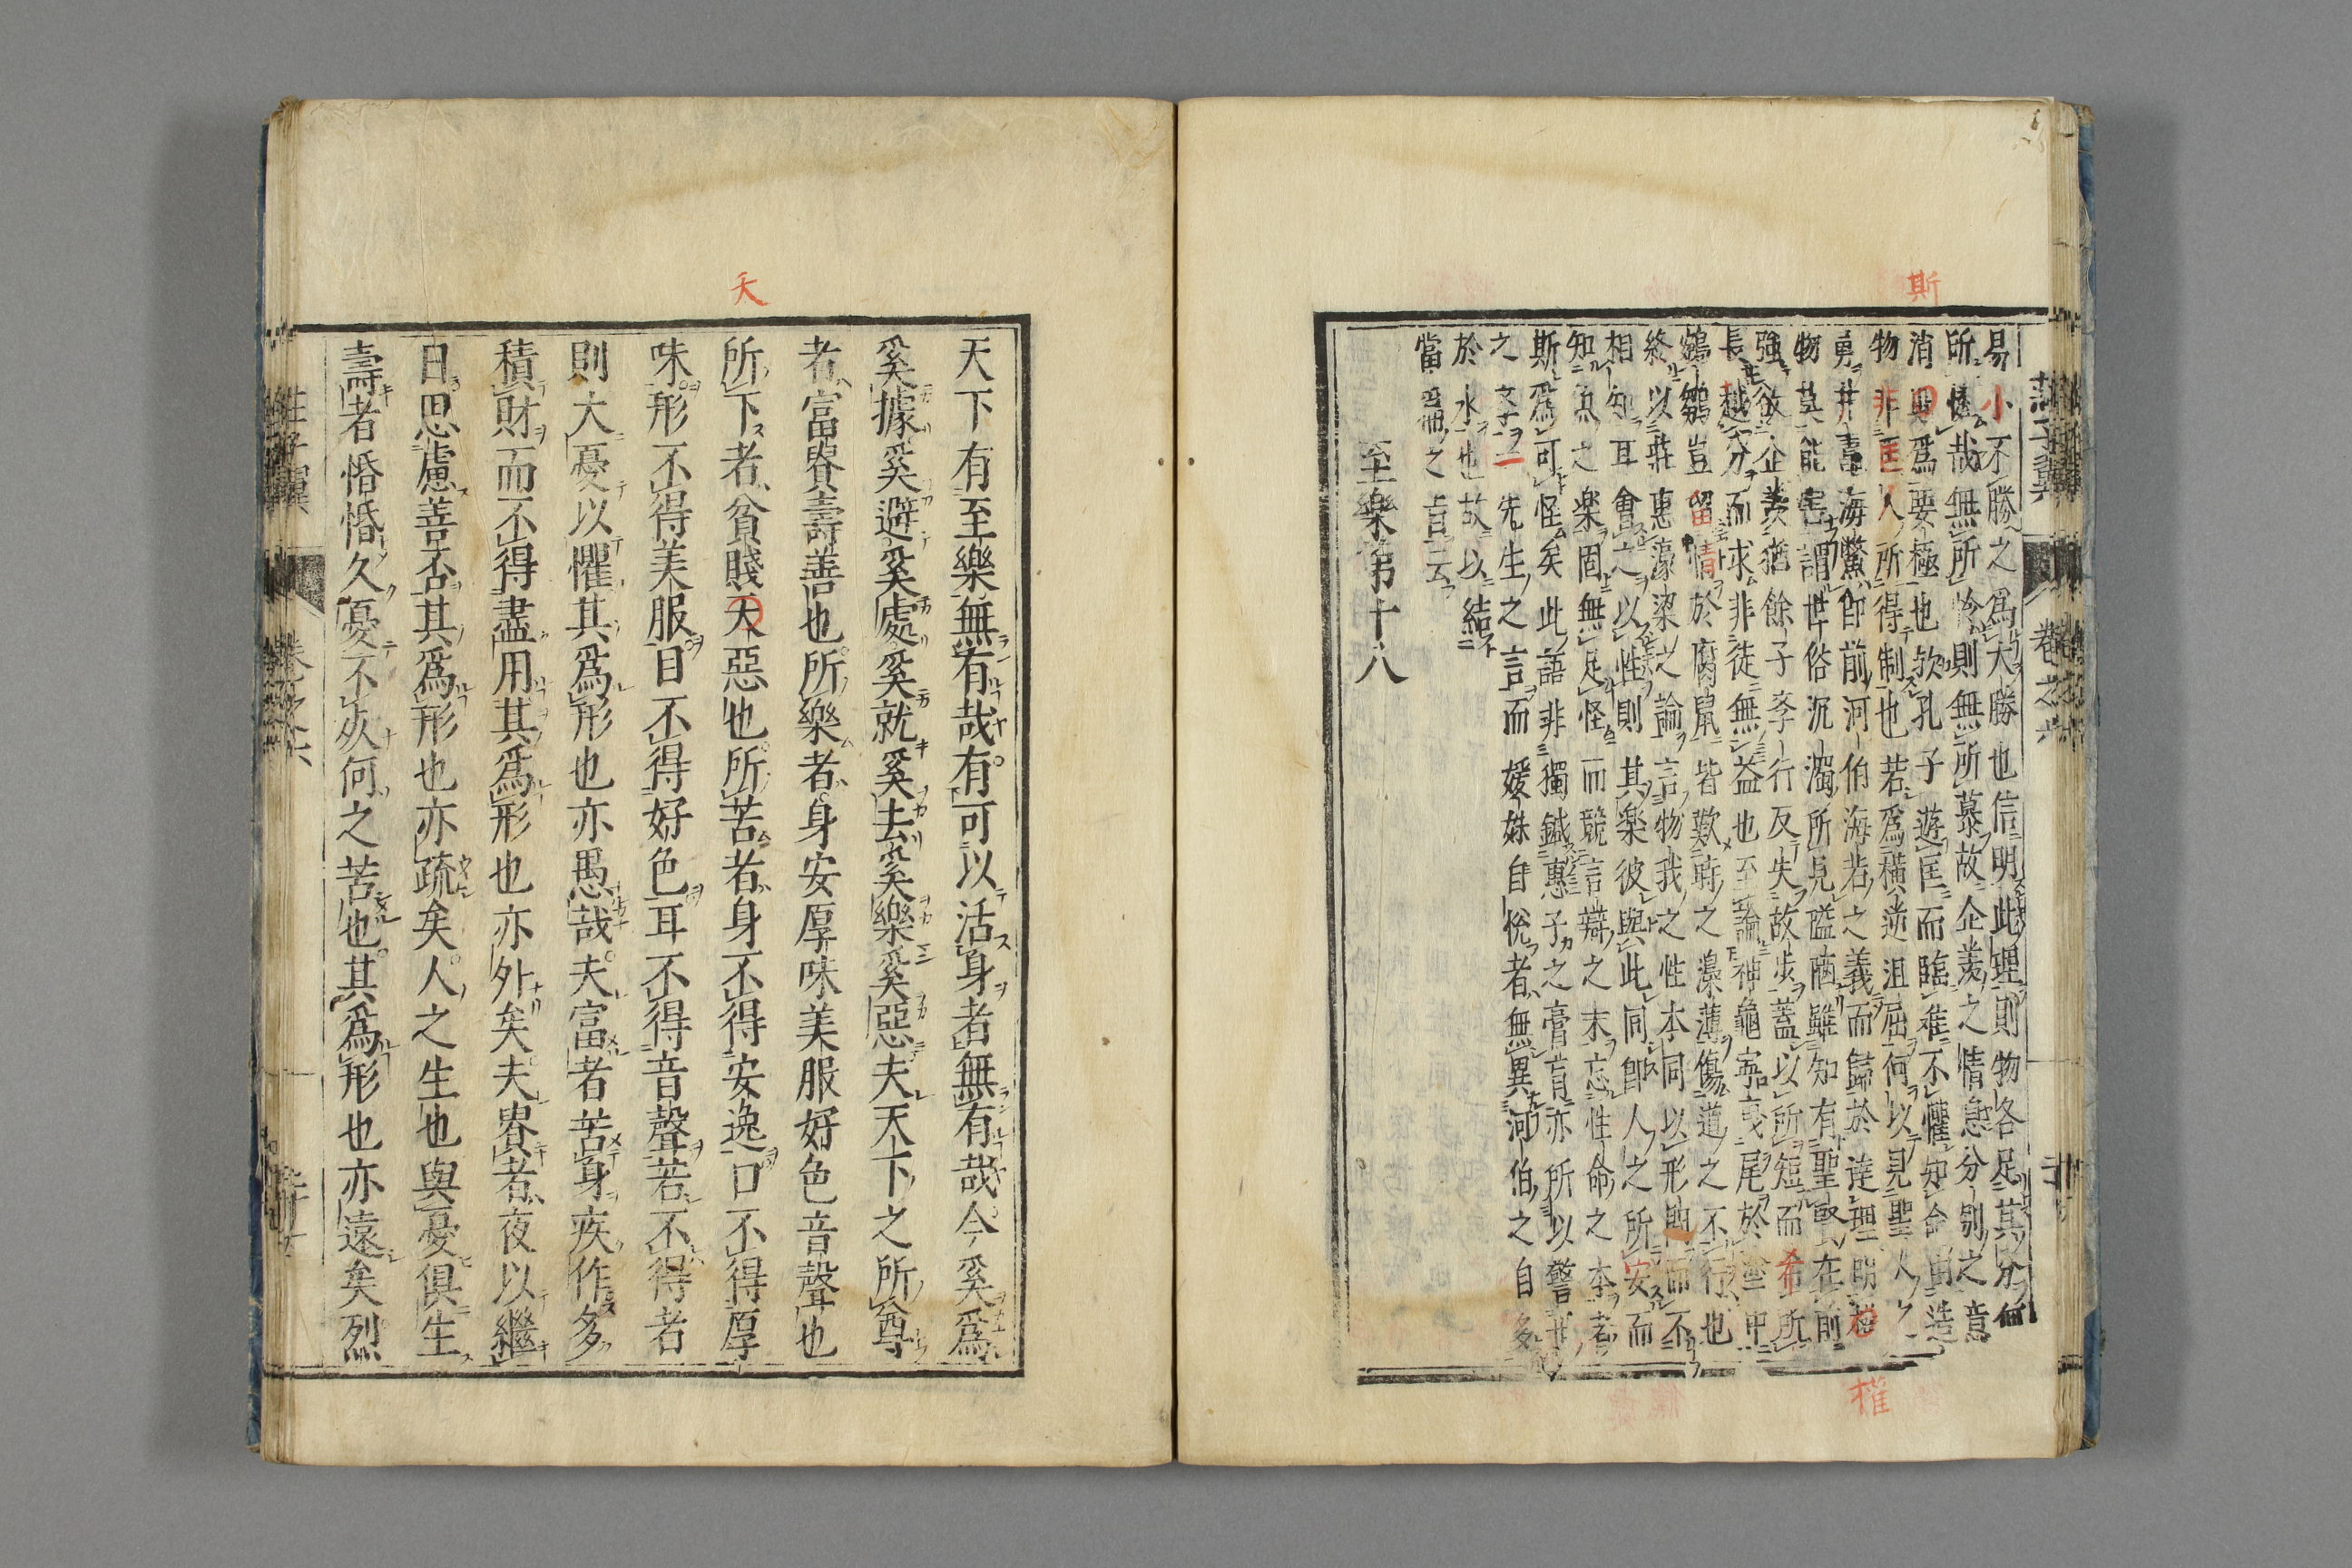 斯
莊子翼　卷之六
易小不勝之爲大勝也信明此理則物各足其分無
所憐哉無所怜則無所慕故企羨之情急分別之意
消要爲要極也欤孔子遊匡而臨难不懼知命由造
物非匡人所得制也若爲橫逆沮屈何以見聖人之
勇井䵷海鱉即前河伯海若之義而歸於達理明權
物莫能害謂世俗沉濁所見隘陋雖知有聖賢在前
強欲企羨猶餘子李行反失故步蓋以所短而希所
長越分而求非徒無益也至論神龜寧曳尾於塗中
鵷鶵豈留情於腐鼠皆歎時之澆薄傷道之不行也
終以莊惠濠梁之論言物我之性本同以形而不
相知耳會之以性則其樂彼與此同即人之所安而
知魚之樂固無足怪而競言辯之末忘性命之本者
斯爲可怪矣此語非獨鍼惠子之膏肓亦所以警世
之子一先生之言而媛姝自悅者無異河伯之自多
於水也故以結
當篇之旨云
至樂第十八
權
天
天下有至樂無有哉有可以活身者無有哉今奚爲
奚據奚避奚處奚就奚去奚樂奚惡夫天下之所尊
者富貴壽善也所樂者身安厚味美服好色音聲也
所下者貧賤夭惡也所苦者身不得安逸口不得厚
味形不得美服目不得好色耳不得音聲若不得者
則大憂以懼其爲形也亦愚哉夫富者苦身疾作多
積財而不得盡用其爲形也亦外矣夫貴者夜以繼
日思慮善否其爲形也亦疏矣人之生也與憂俱生
壽者惛惛久憂不死何之苦也其爲形也亦遠矣烈